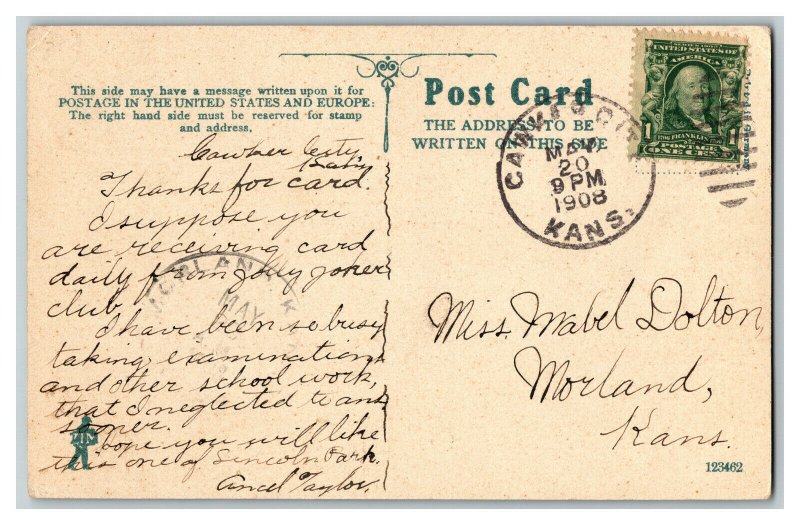 This side may have a message written upon it for
POSTAGE IN THE UNITED STATES AND EUROPE:
The right hand side must be reserved for stamp
and address.
Cawker City
Thanks for card.
I suppose you
are receiving card
daily from Jolly Joker
club.
I have been so busy
taking examinations
and other school work,
that I neglected to ans
sooner.
hope you will like
this one of Lincoln Park.
Ancel Taylor.
MORLAND K
MAY
Post Card
THE ADDRESS TO BE
WRITTEN ON THIS SIDE
CAWKER CITY
MAY
20
9 PM
1908
KANS.
UNITED STATES OF
AMERICA
1
FRANKLIN
POSTAGE
ONE CENT
Miss. Mabel Dolton,
Morland,
Kans.
123462